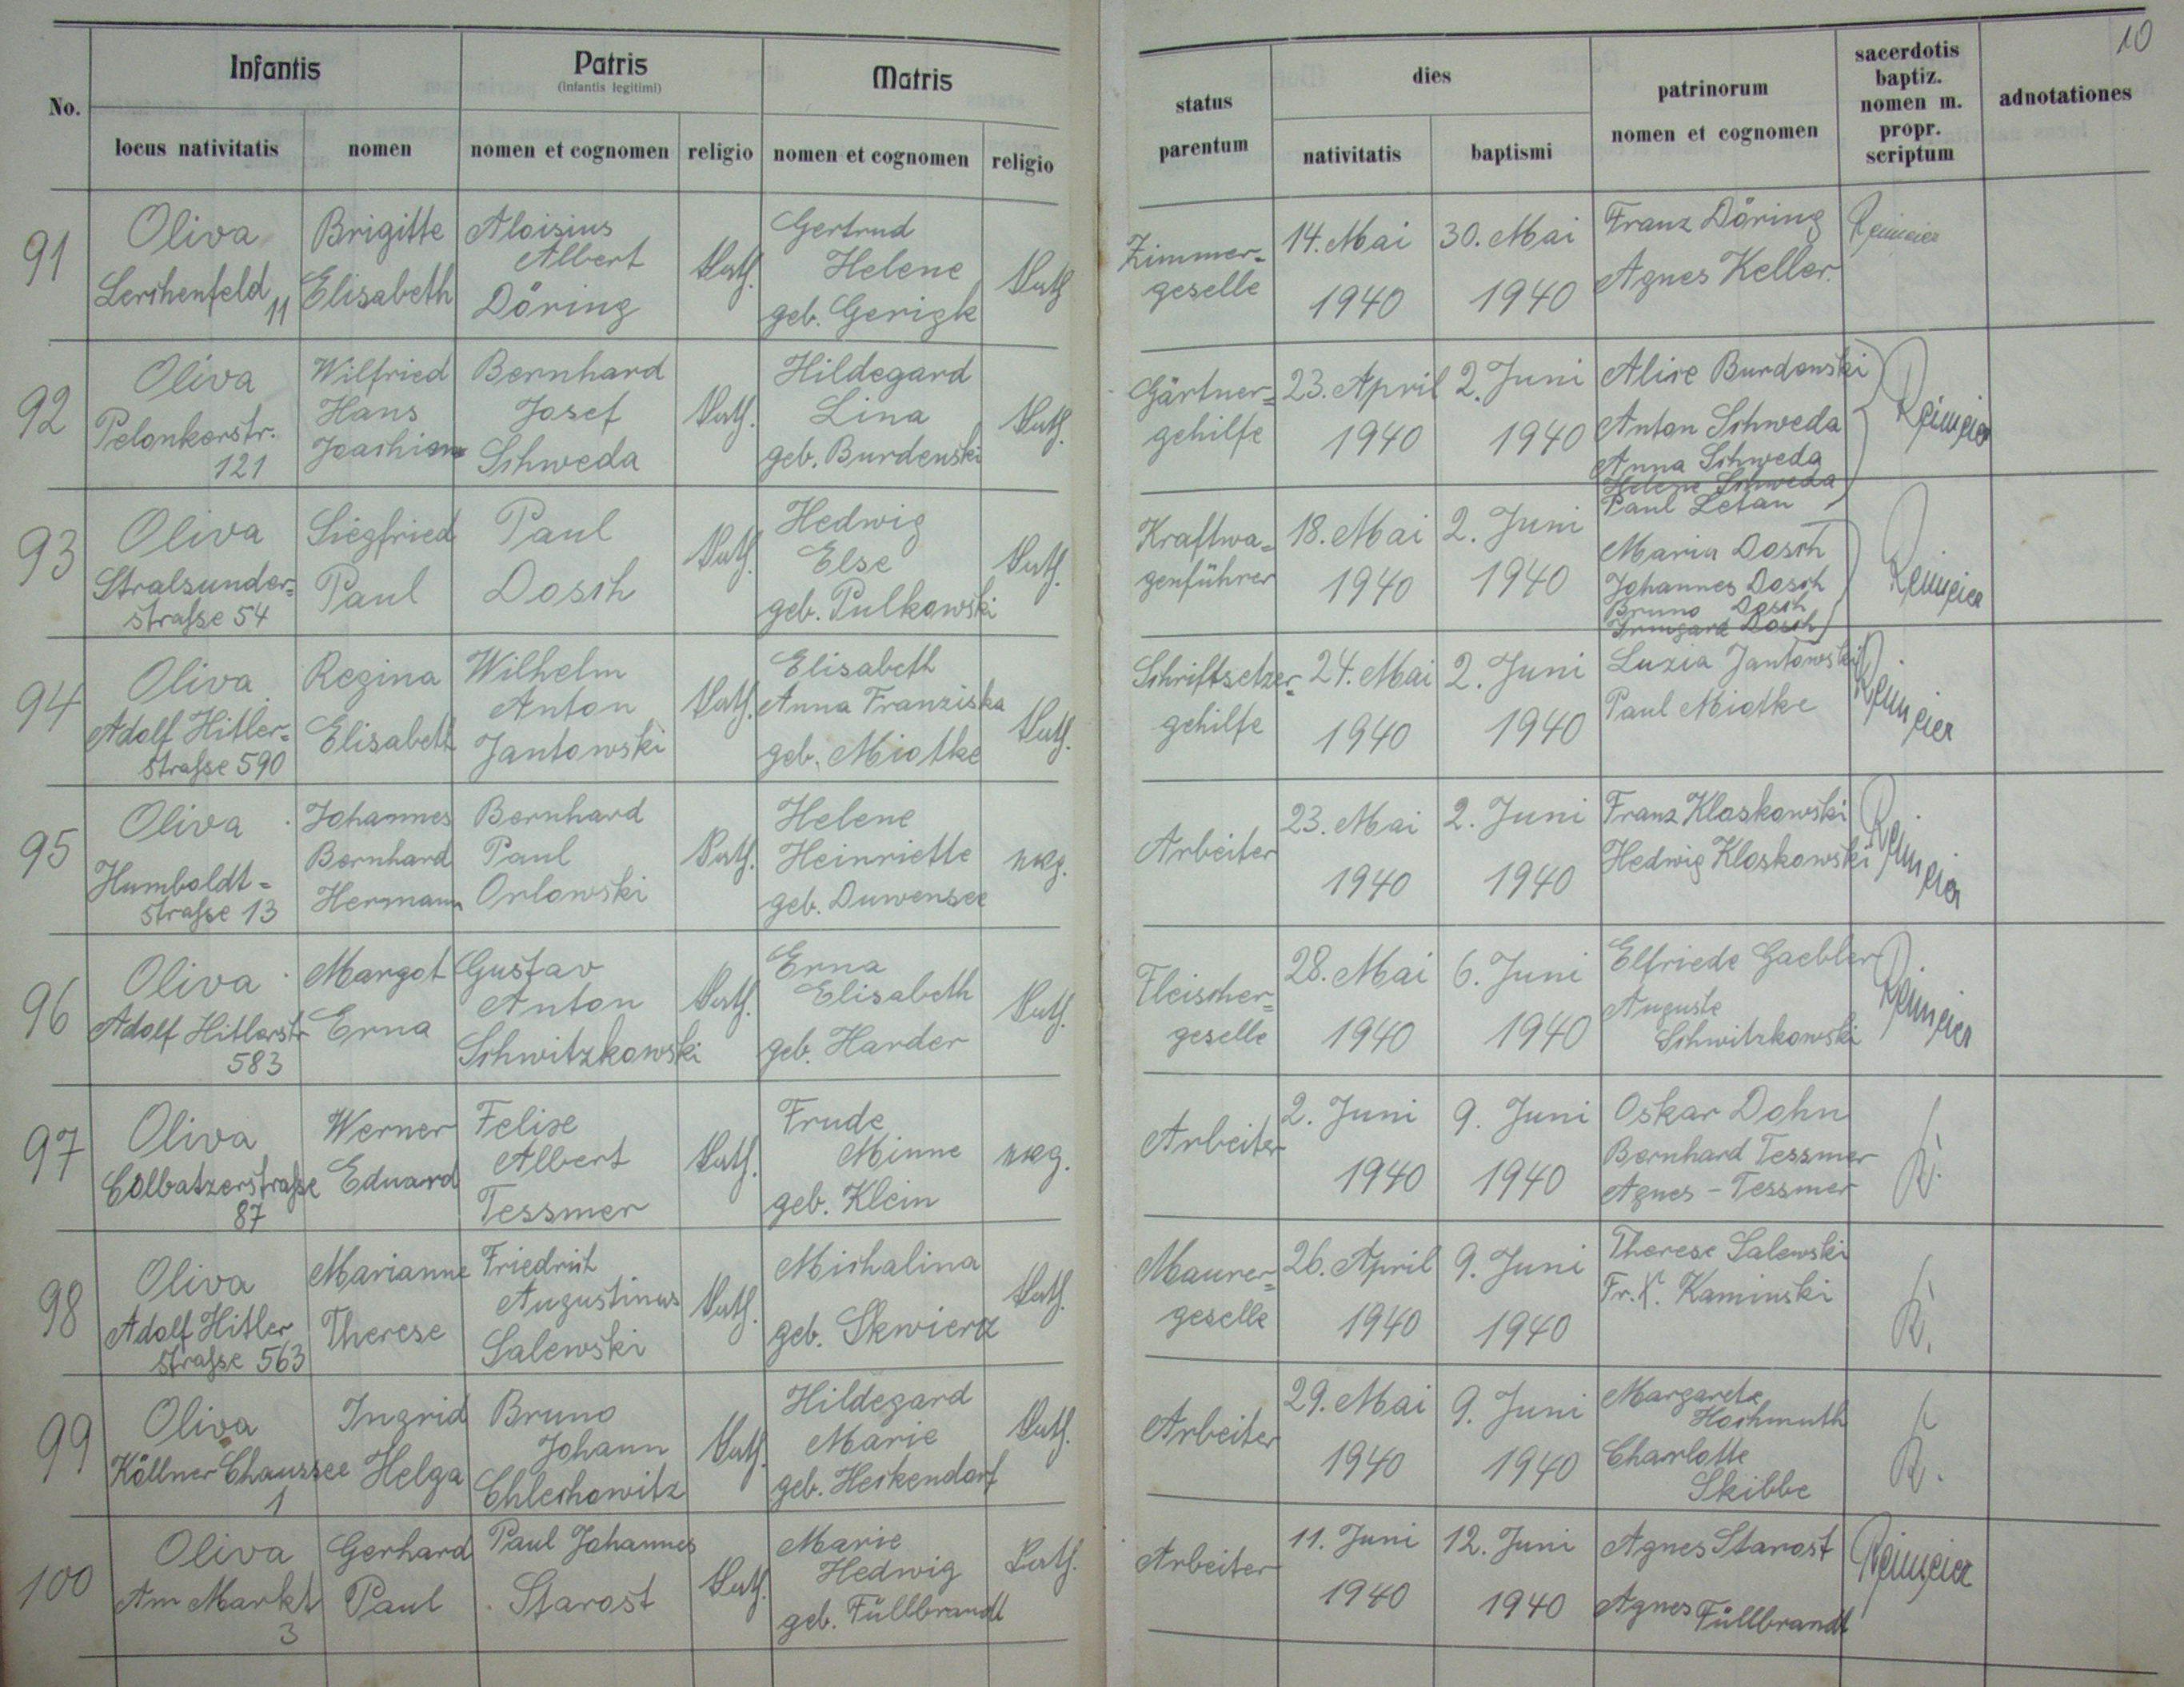 10
No.
Infantis
locus nativitatis
nomen
Patris
(infantis legitimi)
nomen et cognomen
religio
Matris
nomen et cognomen
religio
status
parentum
dies
nativitatis
baptismi
patrinorum
nomen et cognomen
sacerdotis
baptiz.
nomen m.
propr.
scriptum
adnotationes
91
Oliva
Lerchenfeld
11
Brigitte
Elisabeth
Aloisius
Albert
Döring
kath.
Gertrud
Helene
geb. Gerigk
kath
Zimmer-
geselle
14. Mai
1940
30. Mai
1940
Franz Döring
Agnes Keller
92
Oliva
Pelonkerstr.
121
Wilfried
Hans
Joachim
Bernhard
Josef
Schweda
kath.
Hildegard
Lina
geb. Burdenski
kath.
Gärtner=
gehilfe
23. April
1940
2. Juni
1940
Alice Burdenski
Anton Schweda
Anna Schweda
Helene Schweda
Paul Letau
93
Oliva
Stralsunder=
strasse 54
Siegfried
Paul
Paul
Dosch
kath.
Hedwig
Else
geb. Pulkowski
kath.
Kraftwa=
genführer
18. Mai
1940
2. Juni
1940
Maria Dosch
Johannes Dosch
Bruno Dosch
Irmgard Dosch
94
Oliva
Adolf Hitler=
strasse 590
Regina
Elisabeth
Wilhelm
Anton
Jantowski
kath.
Elisabeth
Anna Franziska
geb. Miotke
kath.
Schriftsetzer=
gehilfe
24. Mai
1940
2. Juni
1940
Luzia Jantowski
Paul Miotke
95
Oliva
Humboldt=
strasse 13
Johannes
Bernhard
Hermann
Bernhard
Paul
Orlowski
kath.
Helene
Heinriette
geb. Duwensee
Arbeiter
23. Mai
1940
2. Juni
1940
Franz Kloskowski
Hedwig Kloskowski
96
Oliva
Adolf Hitlerstr
583
Margot
Erna
Gustav
Anton
Schwitzkowski
kath.
Erna
Elisabeth
geb. Harder
kath.
Fleischer=
geselle
28. Mai
1940
6. Juni
1940
Elfriede Gaebler
Auguste
Schwitzkowski
97
Oliva
Colbatzerstrasse
87
Werner
Eduard
Felixe
Albert
Tessmer
kath.
Frude
Minne
geb. Klein
Arbeiter
2. Juni
1940
9. Juni
1940
Oskar Dohn
Bernhard Tessmer
Agnes - Tessmer
K.
98
Oliva
Adolf Hitler
strasse 563
Marianne
Therese
Friedrich
Augustinus
Salewski
kath.
Michalina
geb. Skwierz
kath.
Maurer=
geselle
26. April
1940
9. Juni
1940
Therese Salewski
Fr. X. Kaminski
K.
99
Oliva
Köllner Chaussee
1
Ingrid
Helga
Bruno
Johann
Chlechowitz
kath.
Hildegard
Marie
geb. Heckendorf
kath.
Arbeiter
29. Mai
1940
9. Juni
1940
Margarete
Hochmuth
Charlotte
Skibbe
K.
100
Oliva
Am Markt
3
Gerhard
Paul
Paul Johannes
Starost
kath.
Marie
Hedwig
geb. Füllbrandt
kath.
Arbeiter
11. Juni
1940
12. Juni
1940
Agnes Starost
Agnes Füllbrandt